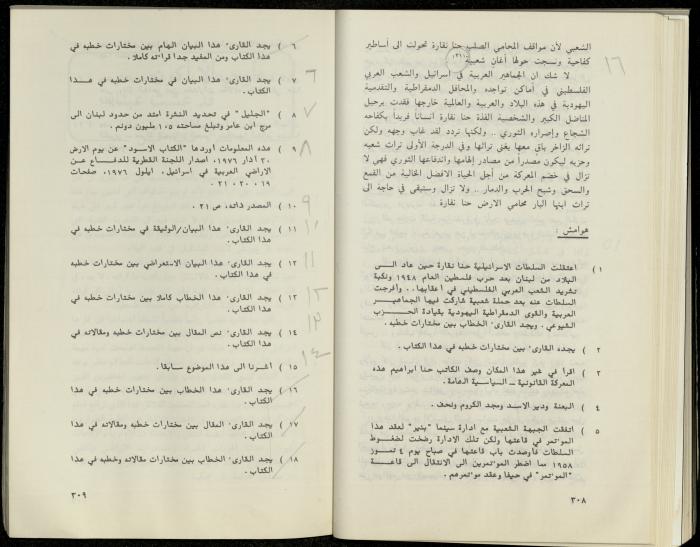 الشعبي لأن مواقف المحامي الصلب حنا نقارة تحولت الى أساطير
كفاحية ونسجت حولها أغان شعبية
لا شك ان الجماهير العربية في اسرائيل والشعب العربي
الفلسطيني في أماكن تواجده والمحافل الدمقراطية والتقدمية
اليهودية في هذه البلاد والعربية والعالمية خارجها فقدت برحيل
المناضل الكبير والشخصية الفذة حنا نقارة انسانا فريدا بكفاحه
الشجاع وإصراره الثوري .. ولكنها تردد لقد غاب وجهه ولكن
تراثه الزاخر باق معها يغني تراثها وفي الدرجة الأولى تراث شعبه
وحزبه ليكون مصدراً من مصادر إلهامها واندفاعها الثوري فهي لا
تزال في خضم المعركة من أجل الحياة الافضل الخالية من القمع
والسحق وشبح الحرب والدمار .. ولا تزال وستبقى في حاجة الى
تراث ابنها البار محامي الارض حنا نقارة
هوامش :
١ ) اعتقلت السلطات الاسرائيلية حنا نقارة حين عاد الى
البلاد من لبنان بعد حرب فلسطين العام ١٩٤٨ ونكبة
تشريد الشعب العربي الفلسطيني في اعقابها.. وأفرجت
السلطات عنه بعد حملة شعبية شاركت فيها الجماهير
العربية والقوى الدمقراطية اليهودية بقيادة الحزب
الشيوعي . ويجد القارئ الخطاب بين مختارات خطبه .
٢ ) يجده القارئ بين مختارات خطبه في هذا الكتاب .
٣ ) اقرأ في غير هذا المكان وصف الكاتب حنا ابراهيم هذه
المعركة القانونية - السياسية الهامة .
٤ ) البعنة ودير الاسد ومجد الكروم ونحف .
٥ ) اتفقت الجبهة الشعبية مع ادارة سينما "بنير" لعقد هذا
المؤتمر في قاعتها ولكن تلك الادارة رضخت لضغوط
السلطات فأوصدت باب قاعتها في صباح يوم ٤ تموز
١٩٥٨ مما اضطر المؤتمرين الى الانتقال الى قاعة
"المؤتمر" في حيفا وعقد مؤتمرهم .
٣٠٨
١٦
٦ ) يجد القارئ هذا البيان الهام بين مختارات خطبه في
هذا الكتاب ومن المفيد جدا قراءته كاملا .
٧ ) يجد القارئ هذا البيان في مختارات خطبه في هذا
الكتاب .
٨ ) "الجليل" في تحديد النشرة امتد من حدود لبنان الى
مرج ابن عامر وتبلغ مساحته ١٫٥ مليون دونم .
٩ ) هذه المعلومات اوردها "الكتاب الاسود" عن يوم الارض
٣٠ آذار ١٩٧٦، اصدار اللجنة القطرية للدفاع عن
الاراضي العربية في اسرائيل، ايلول ١٩٧٦، صفحات
١٩ ، ٢٠ ، ٢١ .
١٠ ) المصدر ذاته، ص ٢١ .
١١ ) يجد القارئ هذا البيان/الوثيقة في مختارات خطبه في
هذا الكتاب .
١٢ ) يجد القارئ هذا البيان الاستعراضي بين مختارات خطبه
في هذا الكتاب .
١٣ ) يجد القارئ هذا الخطاب كاملا بين مختارات خطبه في
هذا الكتاب .
١٤ ) يجد القارئ نص المقال بين مختارات خطبه ومقالاته في
هذا الكتاب .
١٥ ) أشرنا الى هذا الموضوع سابقا .
١٦ ) يجد القارئ هذا الخطاب بين مختارات خطبه في هذا
الكتاب .
١٧ ) يجد القارئ المقال بين مختارات خطبه ومقالاته في هذا
الكتاب .
١٨ ) يجد القارئ الخطاب بين مختارات مقالاته وخطبه في هذا
الكتاب .
٣٠٩
٦
٧
٨
٩
١٠
١١
١٢
١٣
١٤